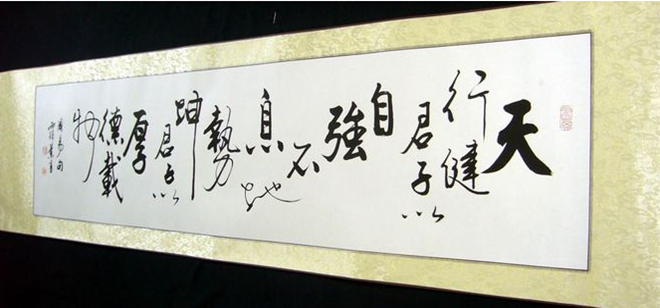 天
行健
君子以
自
強
不
息
地
勢
坤
君子以
厚
德載
物
周易句